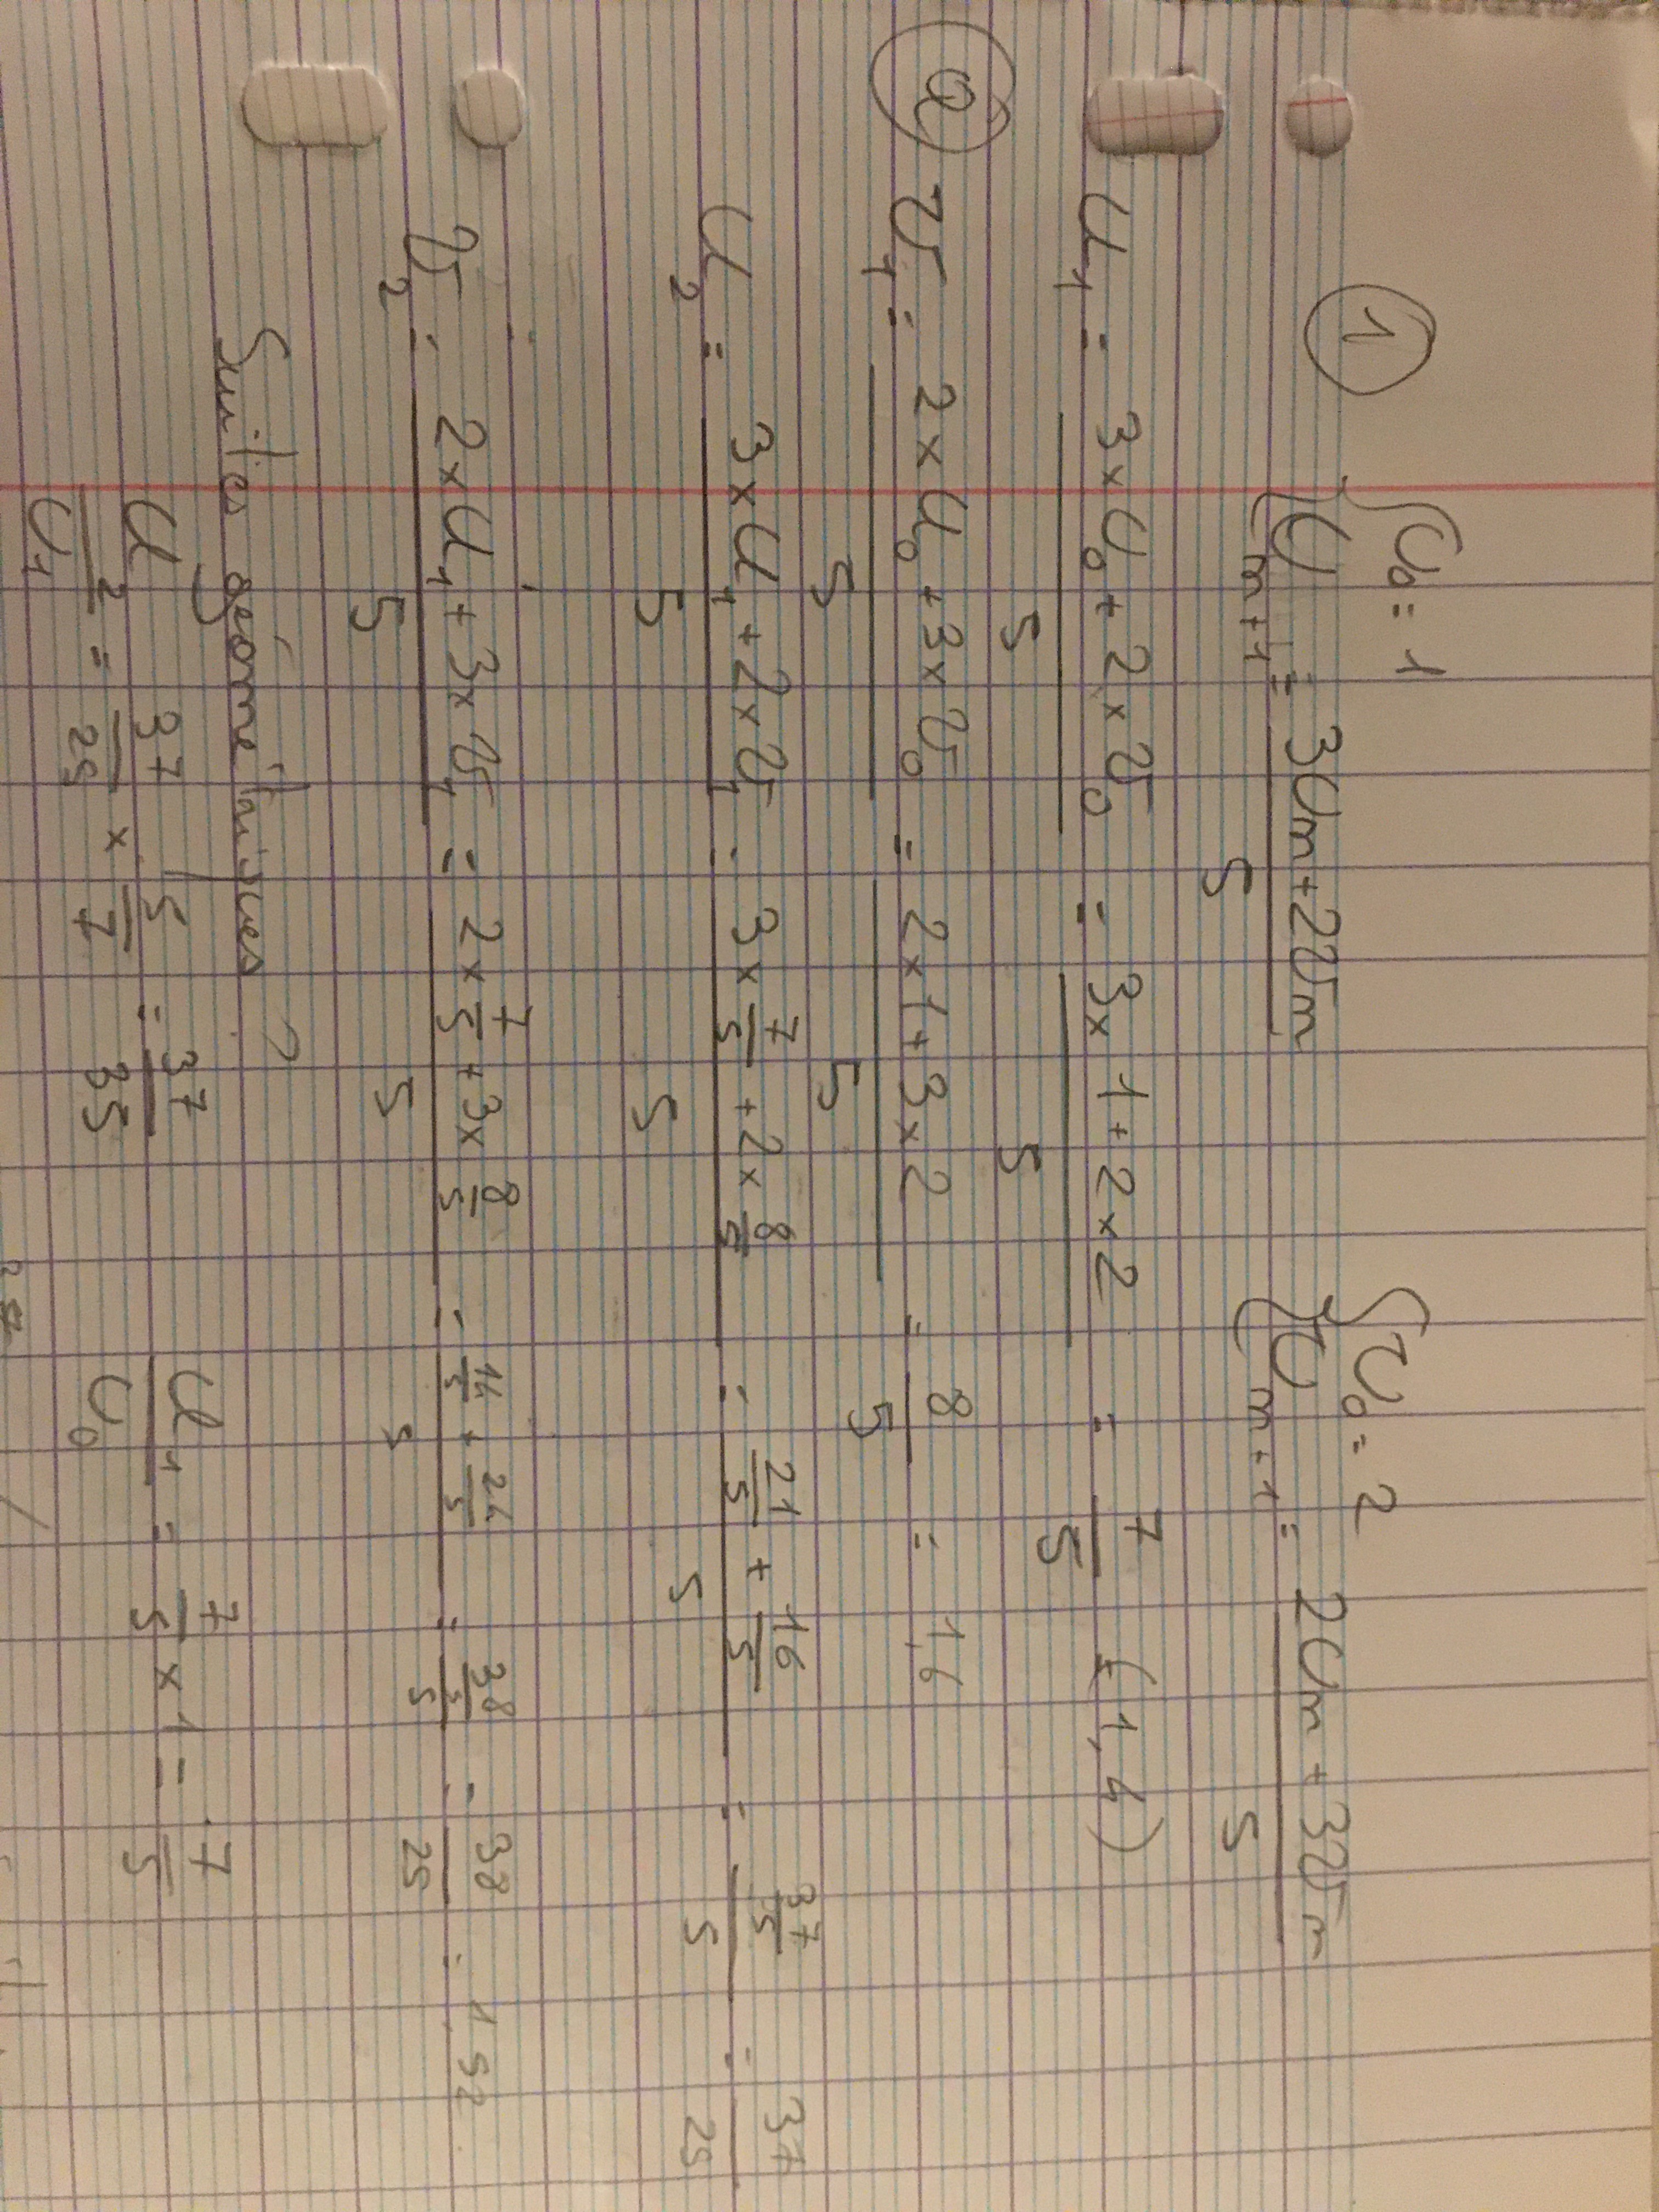 ① { U₀ = 1 { V₀ = 2
{ Uₙ₊₁ = (3Uₙ + 2Vₙ)/5 { Vₙ₊₁ = (2Uₙ + 3Vₙ)/5
U₁ = (3 × U₀ + 2 × V₀)/5 = (3 × 1 + 2 × 2)/5 = 7/5 = (1,4)
ⓐ V₁ = (2 × U₀ + 3 × V₀)/5 = (2 × 1 + 3 × 2)/5 = 8/5 = 1,6
U₂ = (3 × U₁ + 2 × V₁)/5 = (3 × 7/5 + 2 × 8/5)/5 = (21/5 + 16/5)/5 = (37/5)/5 = 37/25
V₂ = (2 × U₁ + 3 × V₁)/5 = (2 × 7/5 + 3 × 8/5)/5 = (14/5 + 24/5)/5 = (38/5)/5 = 38/25 = 1,52
Suites géométriques ?
U₂/U₁ = 37/25 × 5/7 = 37/35 U₁/U₀ = 7/5 × 1 = 7/5